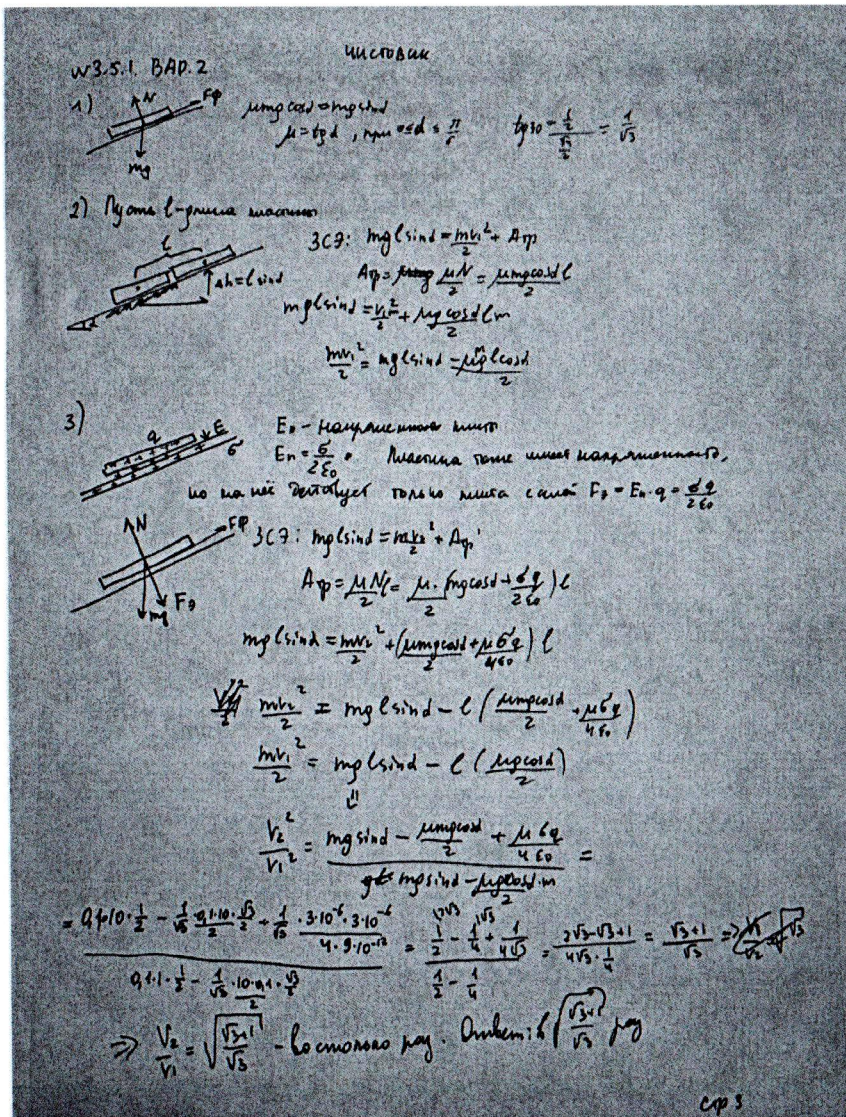 чистовик
№3.5.1. ВАР.2
1) N Fф mg μmgcosα=mgsinα
μ=tgα, при 0≤α≤π/6 tg30=(1/2)/(√3/2)=1/√3
2) Пусть l-длина пластины
l Δh=lsinα α
ЗСЭ: mglsinα=mv₁²/2+Aтр
Aтр=μN/2=μmgcosαl/2
mglsinα=v₁²/2+μgcosα/2 lm
mv₁²/2=mglsinα-μmglcosα/2
3) q E σ
- напряженность плиты
Eп=σ/2ε₀. Пластина тоже имеет напряженность,
но на неё действует только плита с силой Fэ=Eп·q=σq/2ε₀
N Fф Fэ mg
ЗСЭ: mglsinα=mv₂²/2+Aтр'
Aтр=μNl/2=μ/2·(mgcosα+σq/2ε₀)l
mglsinα=mv₂²/2+(μmgcosα/2+μσq/4ε₀)l
mv₂²/2=mglsinα-l(μmgcosα/2+μσq/4ε₀)
mv₁²/2=mglsinα-l(μgcosα/2)
⇓
V₂²/V₁²=(mgsinα-μmgcosα/2+μσq/4ε₀)/(mgsinα-μgcosα·m/2)=
=(0,1·10·1/2-1/√3·0,1·10/2·√3/2+1/√3·3·10⁻⁶·3·10⁻⁶/4·9·10⁻¹²)/(0,1·1·1/2-1/√3·10·0,1/2·√3/2)=(1/2-1/4+1/4√3)/(1/2-1/4)=(2√3-√3+1)/(4√3·1/4)=(√3+1)/√3=>
=> V₂/V₁=√((√3+1)/√3) - во столько раз. Ответ: в √((√3+1)/√3) раз
стр 3